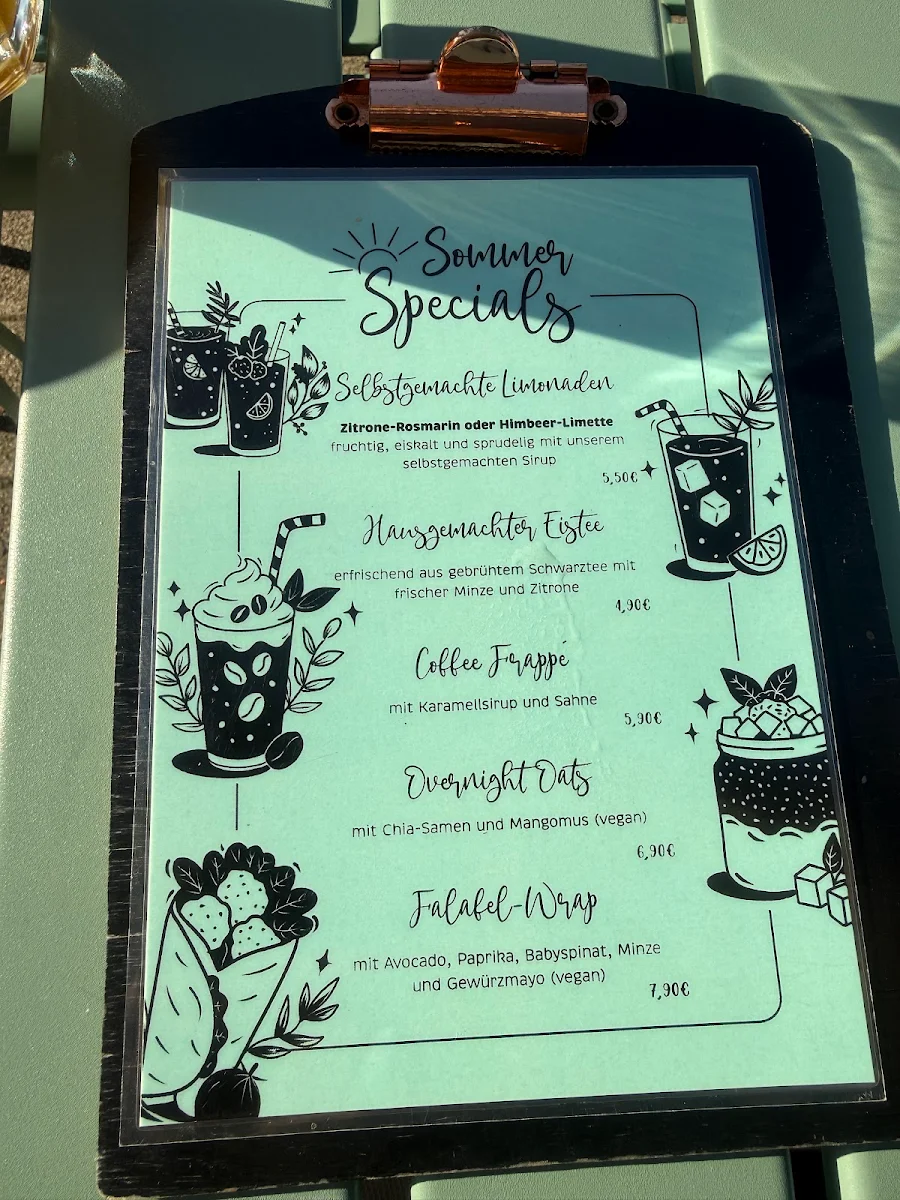 Sommer
Specials
Selbstgemachte Limonaden
Zitrone-Rosmarin oder Himbeer-Limette
fruchtig, eiskalt und sprudelig mit unserem
selbstgemachten Sirup
5,50€
Hausgemachter Eistee
erfrischend aus gebrühtem Schwarztee mit
frischer Minze und Zitrone
4,90€
Coffee Frappé
mit Karamellsirup und Sahne
5,90€
Overnight Oats
mit Chia-Samen und Mangomus (vegan)
6,90€
Falafel-Wrap
mit Avocado, Paprika, Babyspinat, Minze
und Gewürzmayo (vegan)
7,90€